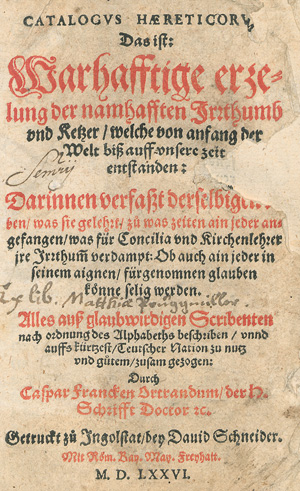 CATALOGVS HÆRETICORV
Das ist:
Warhafftige erze-
lung der namhafften Jrrthumb
vnd Ketzer / welche von anfang der
Welt biß auff vnsere zeit
entstanden:
Darinnen verfaßt derselbigen
ben / was sie gelehrt / zů was zeiten ain jeder an
gefangen / was für Concilia vnd Kirchenlehrer
jre Jrrthum̃ verdampt: Ob auch ain jeder in
seinem aignen / fürgenomnen glauben
könne selig werden.
Ex lib. Matthiæ
Alles auß glaubwirdigen Scribenten
nach ordnung des Alphabeths beschriben / vnnd
auffs kürtzest / Teutscher Nation zu nutz
vnd gůtem / zusam gezogen:
Durch
Caspar Francken Ortrandum / der H.
Schrifft Doctor ꝛc.
Getruckt zů Ingolstat / bey Dauid Schneider.
Mit Röm. Kay. May. Freyhait.
M. D. LXXVI.